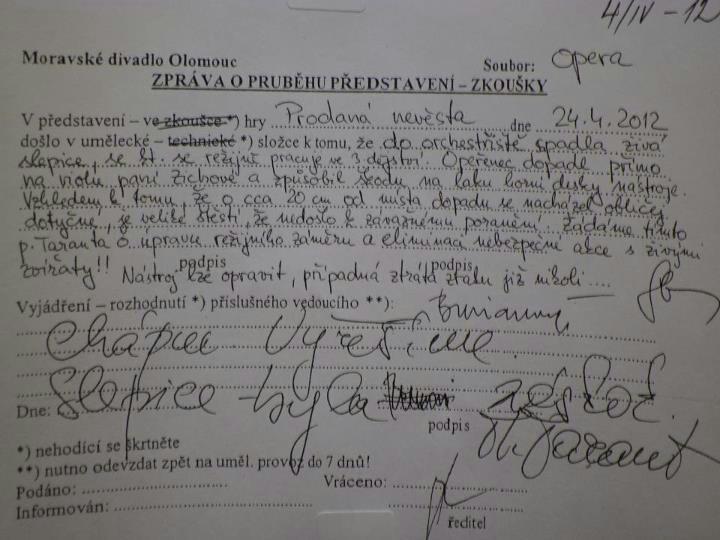 4/IV - 12
Moravské divadlo Olomouc Soubor: Opera
ZPRÁVA O PRUBĚHU PŘEDSTAVENÍ – ZKOUŠKY
V představení – ve zkoušce *) hry Prodaná nevěsta dne 24.4.2012
došlo v umělecké – technické *) složce k tomu, že do orchestřiště spadla živá
slepice, se kt. se režijně pracuje ve 3 dějství. Opeřenec dopadl přímo
na violu paní Zichové a způsobil škodu na laku horní desky nástroje.
Vzhledem k tomu, že o cca 20 cm od místa dopadu se nacházel obličej
dotyčné, je veliké štěstí, že nedošlo k závažnému poranění. Žádáme tímto
p. Taranta o úpravu režijního záměru a eliminaci nebezpečné akce s živými
zvířaty!! podpis podpis
Nástroj lze opravit, případná ztráta zraku již nikoli ....
Vyjádření – rozhodnutí *) příslušného vedoucího **):
Chápu. Vyřešíme.
Slepice byla
Dne: podpis
M. Tarant
*) nehodící se škrtněte
**) nutno odevzdat zpět na uměl. provoz do 7 dnů!
Podáno: Vráceno:
Informován: ředitel